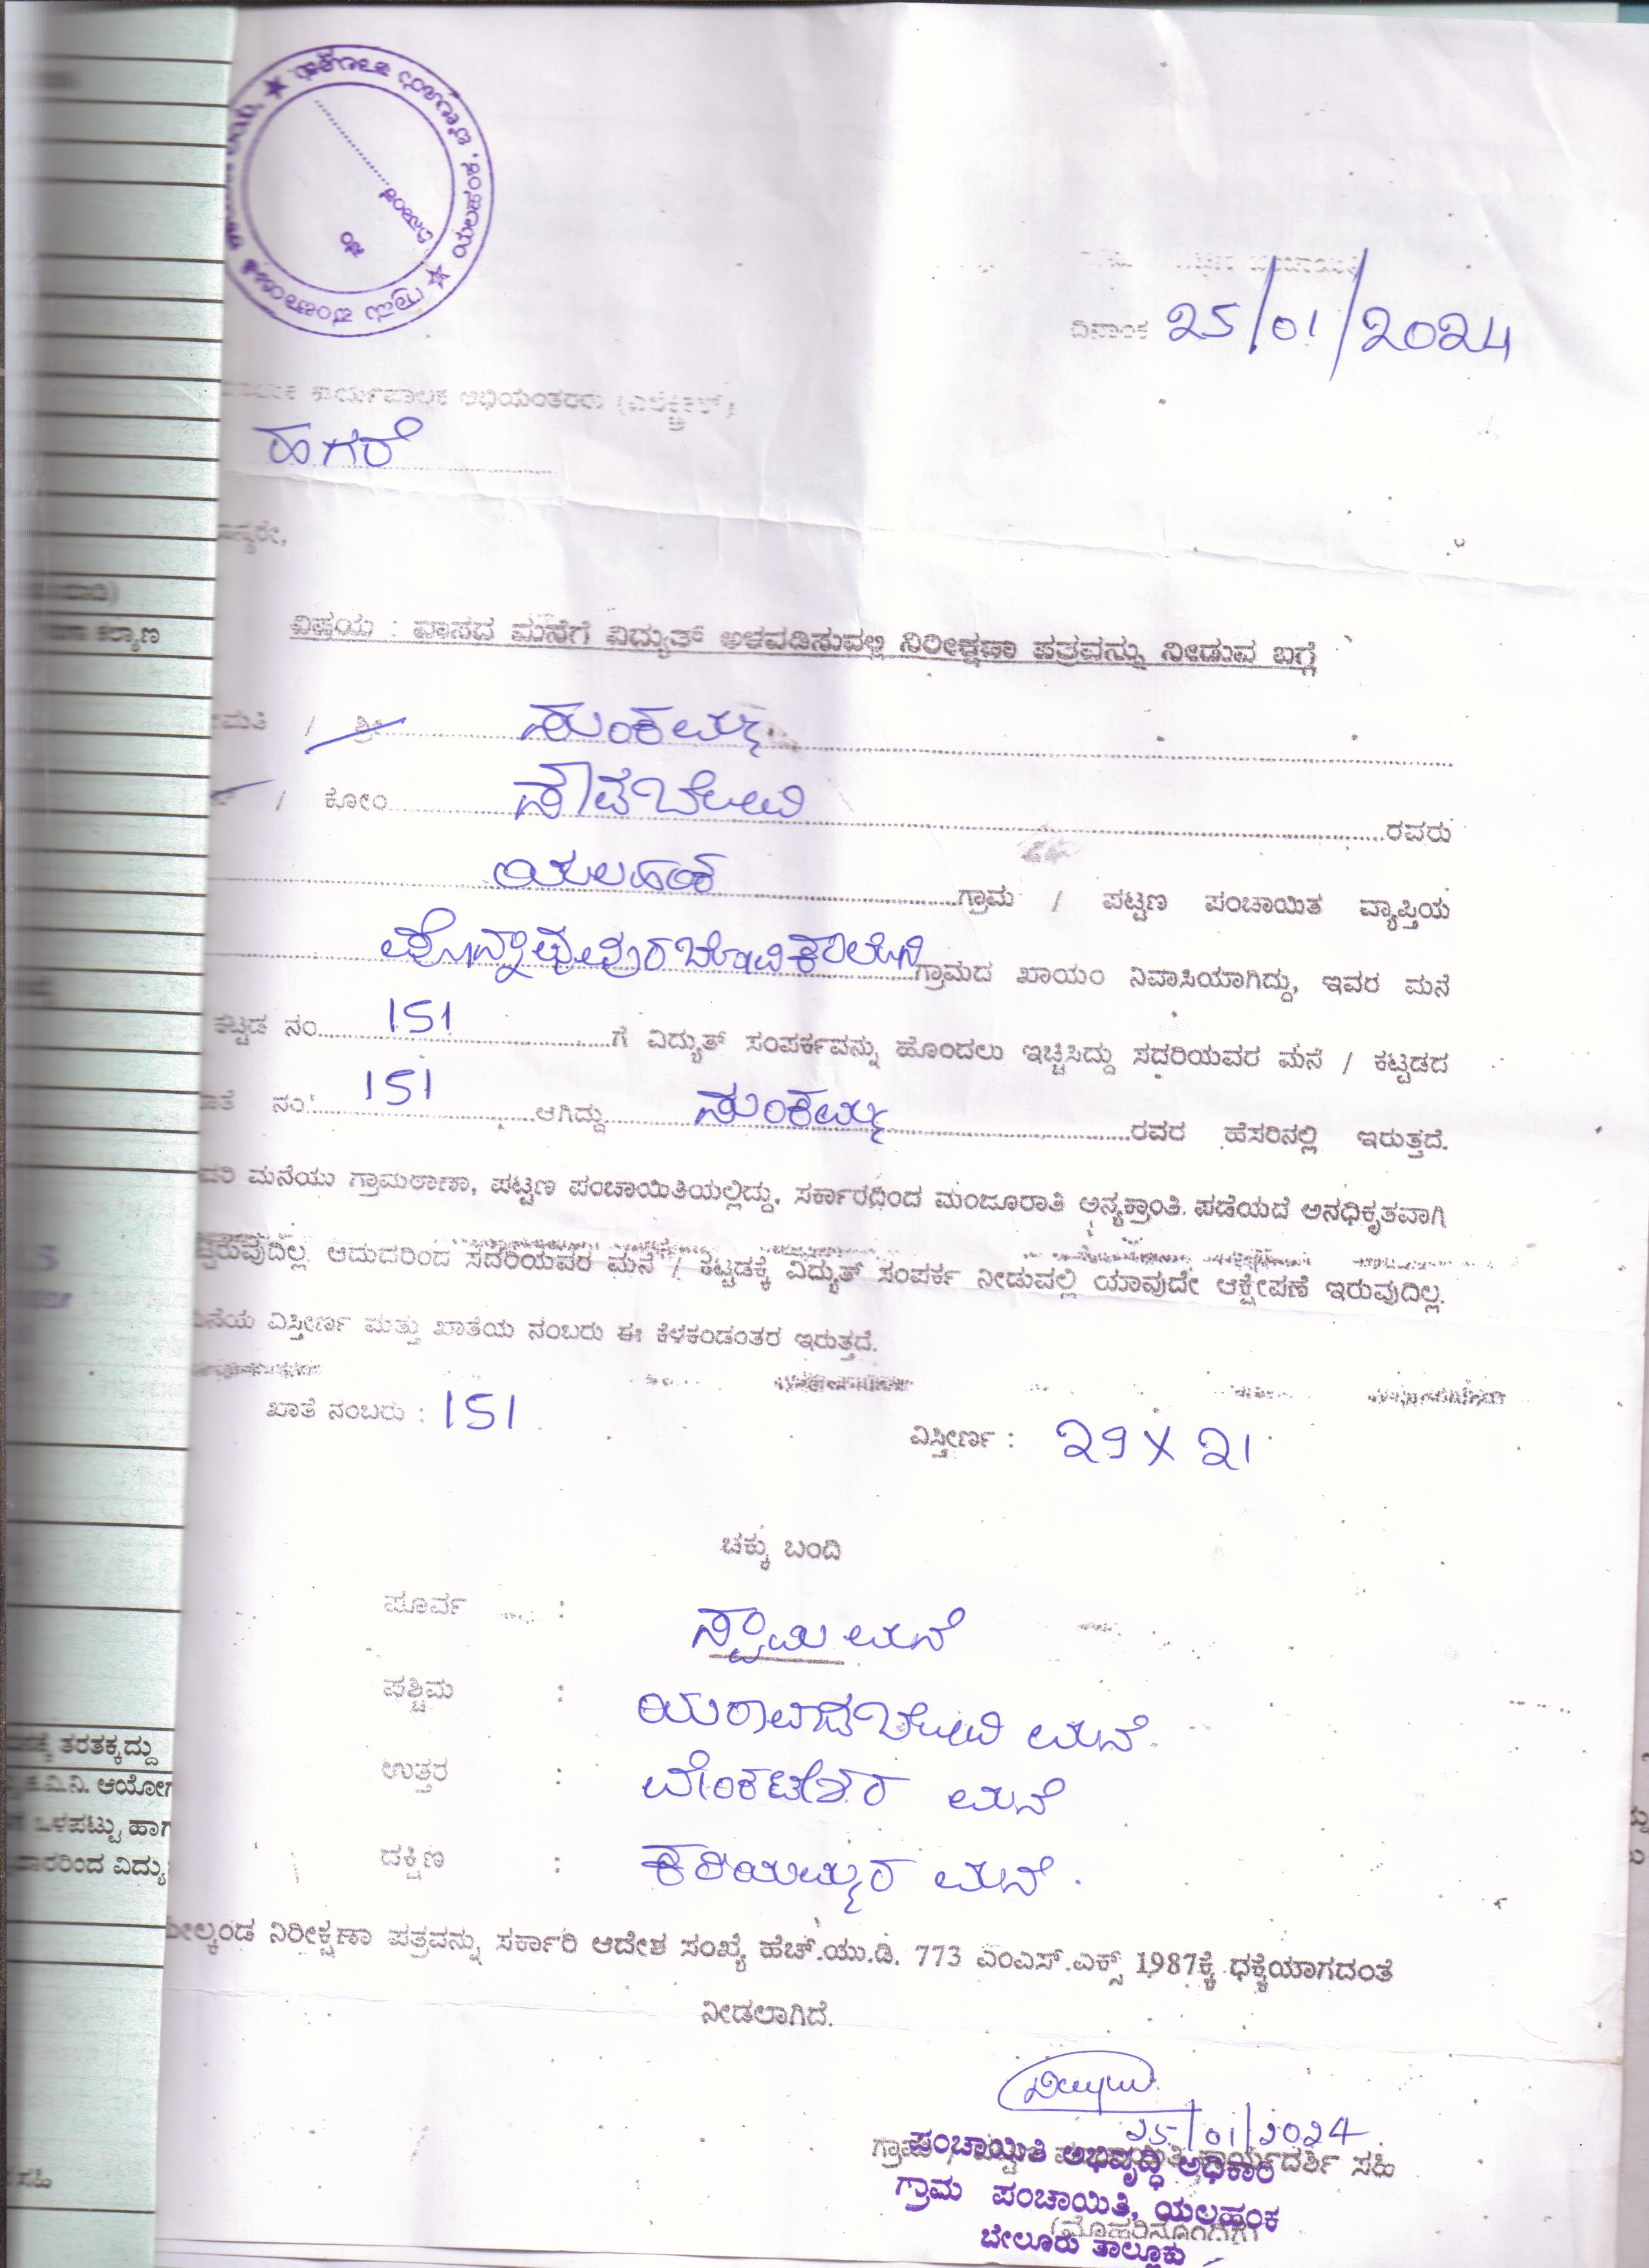 ದಿನಾಂಕ 25/01/2024
ಕಾರ್ಯಪಾಲಕ ಅಭಿಯಂತರರು (ಎಲೆಕ್ಟ್ರಿಕಲ್)
ಹಗರೆ
ವಿಷಯ : ವಾಸದ ಮನೆಗೆ ವಿದ್ಯುತ್ ಅಳವಡಿಸುವಲ್ಲಿ ನಿರೀಕ್ಷಣಾ ಪತ್ರವನ್ನು ನೀಡುವ ಬಗ್ಗೆ
/ ಶ್ರೀ ಸುಂಕಮ್ಮ
/ ಕೋಂ ರವರು
ಯಲಹಂಕ ಗ್ರಾಮ / ಪಟ್ಟಣ ಪಂಚಾಯಿತ ವ್ಯಾಪ್ತಿಯ
ಗ್ರಾಮದ ಖಾಯಂ ನಿವಾಸಿಯಾಗಿದ್ದು, ಇವರ ಮನೆ
ಕಟ್ಟಡ ನಂ 151 ಗೆ ವಿದ್ಯುತ್ ಸಂಪರ್ಕವನ್ನು ಹೊಂದಲು ಇಚ್ಚಿಸಿದ್ದು ಸದರಿಯವರ ಮನೆ / ಕಟ್ಟಡದ
ನಂ 151 ಆಗಿದ್ದು ಸುಂಕಮ್ಮ ರವರ ಹೆಸರಿನಲ್ಲಿ ಇರುತ್ತದೆ.
ಮನೆಯು ಗ್ರಾಮಠಾಣಾ, ಪಟ್ಟಣ ಪಂಚಾಯಿತಿಯಲ್ಲಿದ್ದು, ಸರ್ಕಾರದಿಂದ ಮಂಜೂರಾತಿ ಅನ್ಯಕ್ರಾಂತಿ ಪಡೆಯದೆ ಅನಧಿಕೃತವಾಗಿ
ಆದುದರಿಂದ ಸದರಿಯವರ ಮನೆ / ಕಟ್ಟಡಕ್ಕೆ ವಿದ್ಯುತ್ ಸಂಪರ್ಕ ನೀಡುವಲ್ಲಿ ಯಾವುದೇ ಆಕ್ಷೇಪಣೆ ಇರುವುದಿಲ್ಲ.
ವಿಸ್ತೀರ್ಣ ಮತ್ತು ಖಾತೆಯ ನಂಬರು ಈ ಕೆಳಕಂಡಂತರ ಇರುತ್ತದೆ.
ಖಾತೆ ನಂಬರು : 151
ವಿಸ್ತೀರ್ಣ : 29 X 21
ಚಕ್ಕು ಬಂದಿ
ಪೂರ್ವ : ಸ್ವಾಮಿ ಮನೆ
ಪಶ್ಚಿಮ : ಮನೆ
ಉತ್ತರ : ವೆಂಕಟೇಶರ ಮನೆ
ದಕ್ಷಿಣ : ಕರಿಯಮ್ಮರ ಮನೆ.
ಮೇಲ್ಕಂಡ ನಿರೀಕ್ಷಣಾ ಪತ್ರವನ್ನು ಸರ್ಕಾರಿ ಆದೇಶ ಸಂಖ್ಯೆ ಹೆಚ್.ಯು.ಡಿ. 773 ಎಂಎಸ್.ಎಕ್ಸ್ 1987ಕ್ಕೆ ಧಕ್ಕೆಯಾಗದಂತೆ
ನೀಡಲಾಗಿದೆ.
25/01/2024
ಕಾರ್ಯದರ್ಶಿ ಸಹಿ
ಪಂಚಾಯಿತಿ ಅಭಿವೃದ್ಧಿ ಅಧಿಕಾರಿ
ಗ್ರಾಮ ಪಂಚಾಯಿತಿ, ಯಲಹಂಕ
(ಮೊಹರಿನೊಂದಿಗೆ)
ಬೇಲೂರು ತಾಲ್ಲೂಕು